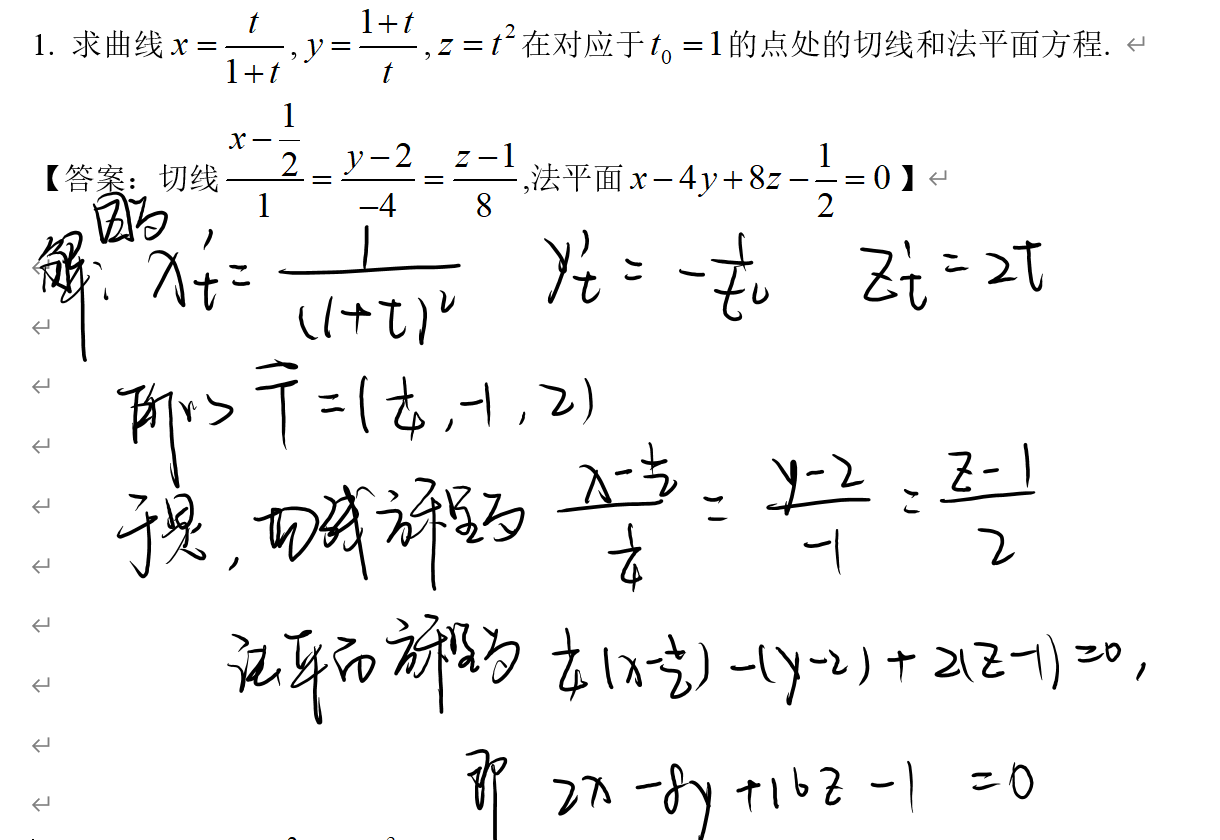 1. 求曲线 x = t/(1+t), y = (1+t)/t, z = t² 在对应于 t₀ = 1 的点处的切线和法平面方程. ↵
【答案：切线 (x − 1/2)/1 = (y − 2)/−4 = (z − 1)/8 ,法平面 x − 4y + 8z − 1/2 = 0 】↵
解：因为 x't = 1/(1+t)² y't = −1/t² z't = 2t
所以 T⃗ = (1/4, −1, 2)
于是，切线方程为 (x − 1/2)/(1/4) = (y − 2)/−1 = (z − 1)/2
法平面方程为 1/4(x − 1/2) − (y − 2) + 2(z − 1) = 0，
即 2x − 8y + 16z − 1 = 0